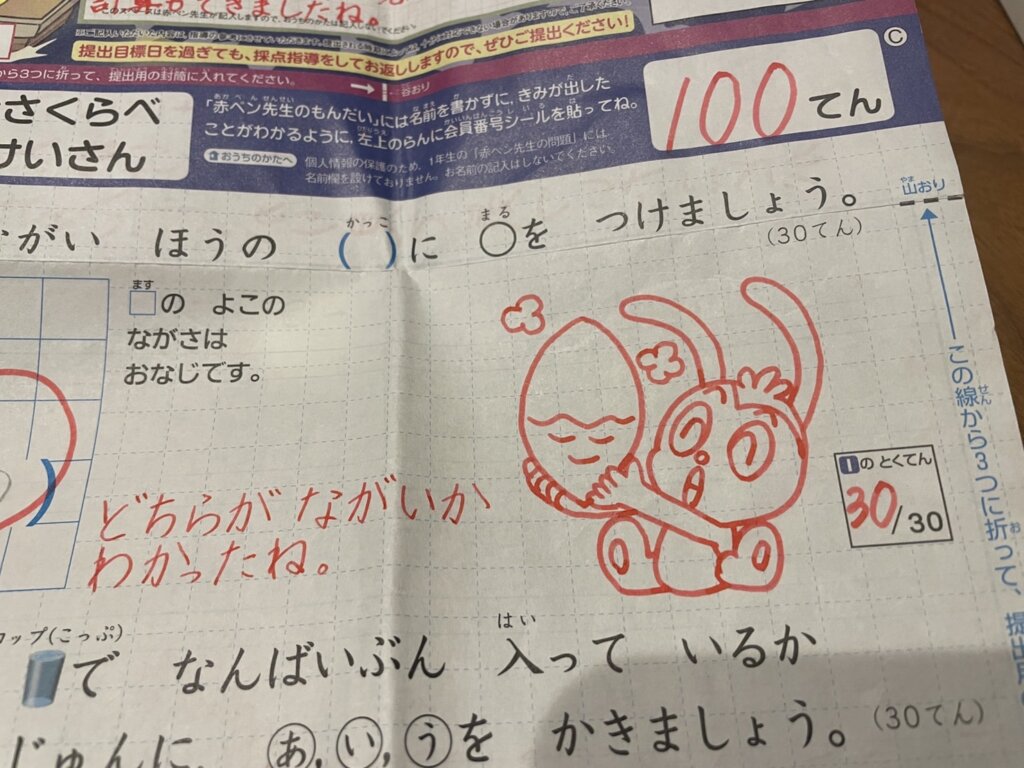 できましたね。
提出目標日を過ぎても、採点指導をしてお返ししますので、ぜひご提出ください!
から3つに折って、提出用の封筒に入れてください。
谷おり
さくらべ
けいさん
「赤ペン先生のもんだい」には名前を書かずに、きみが出した
ことがわかるように、左上のらんに会員番号シールを貼ってね。
おうちのかたへ
個人情報の保護のため、1年生の「赤ペン先生の問題」には
名前欄を設けておりません。お名前の記入はしないでください。
C
100てん
山おり
ながい ほうの ( )に ○を つけましょう。
(30てん)
□の よこの
ながさは
おなじです。
どちらが ながいか
わかったね。
1の とくてん
30/30
この線から3つに折って、提出用
コップ(こっぷ)
で なんばいぶん 入って いるか
じゅんに、 あ,い,うを かきましょう。(30てん)